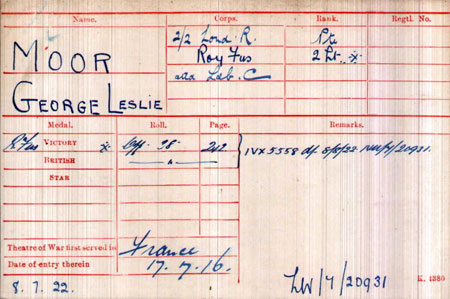 Name. Corps. Rank. Regtl. No.
MOOR 2/2 Lond. R. Pte
Roy Fus 2 Lt. x
GEORGE LESLIE att Lab. C
Medal. Roll. Page. Remarks.
R. Fus VICTORY x Off 98 242 } IVX 5558 df 5/5/22 NW/4/20931.
BRITISH "
STAR
Theatre of War first served in France
Date of entry therein 17.7.16.
8.7.22. NW/4/20931 K. 1380